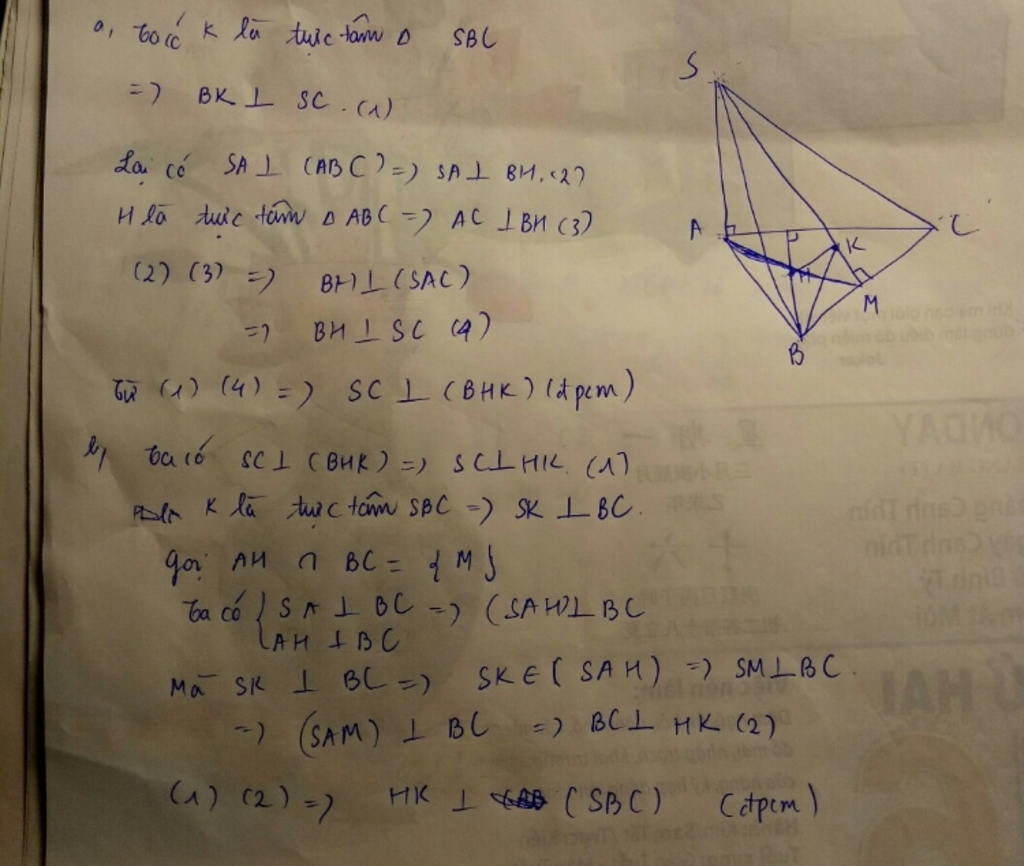 a, Ta có K là trực tâm Δ SBC
=> BK ⊥ SC. (1)
Lại có SA ⊥ (ABC) => SA ⊥ BH. (2)
H là trực tâm Δ ABC => AC ⊥ BH (3)
(2) (3) => BH ⊥ (SAC)
=> BH ⊥ SC (4)
Từ (1) (4) => SC ⊥ (BHK) (đpcm)
b, Ta có SC ⊥ (BHK) => SC ⊥ HK. (1)
K là trực tâm SBC => SK ⊥ BC.
Gọi AH ∩ BC = {M}
Ta có { SA ⊥ BC => (SAH) ⊥ BC
AH ⊥ BC
Mà SK ⊥ BC => SK ∈ (SAH) => SM ⊥ BC.
=> (SAM) ⊥ BC => BC ⊥ HK (2)
(1) (2) => HK ⊥ (SBC) (đpcm)
S
A
C
K
H
M
B